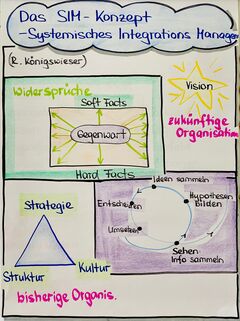 Das SIM-Konzept
-Systemisches Integrations Manager
(R. Königswieser)
Widersprüche
Soft Facts
Gegenwart
Hard Facts
Vision
zukünftige
Organisation
Strategie
Struktur
Kultur
bisherige Organis.
Ideen sammeln
Hypothesen
Bilden
Entscheiden
Umsetzen
Sehen
Info sammeln